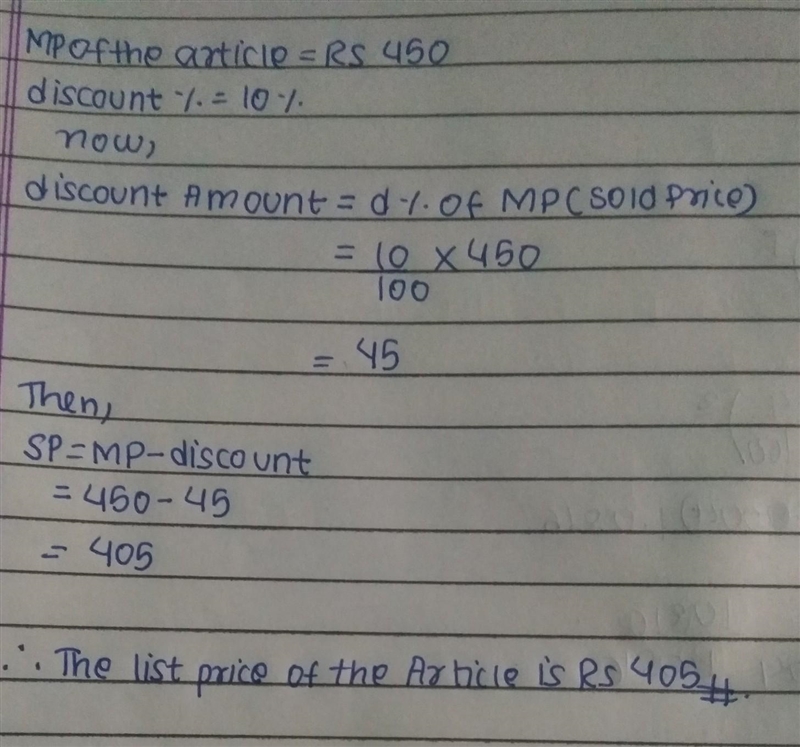 MP of the article = RS 450
discount % = 10 %
now,
discount Amount = d% of MP (sold price)
= 10 × 450
100
= 45
Then,
SP = MP - discount
= 450 - 45
= 405
∴ The list price of the Article is Rs 405 #.